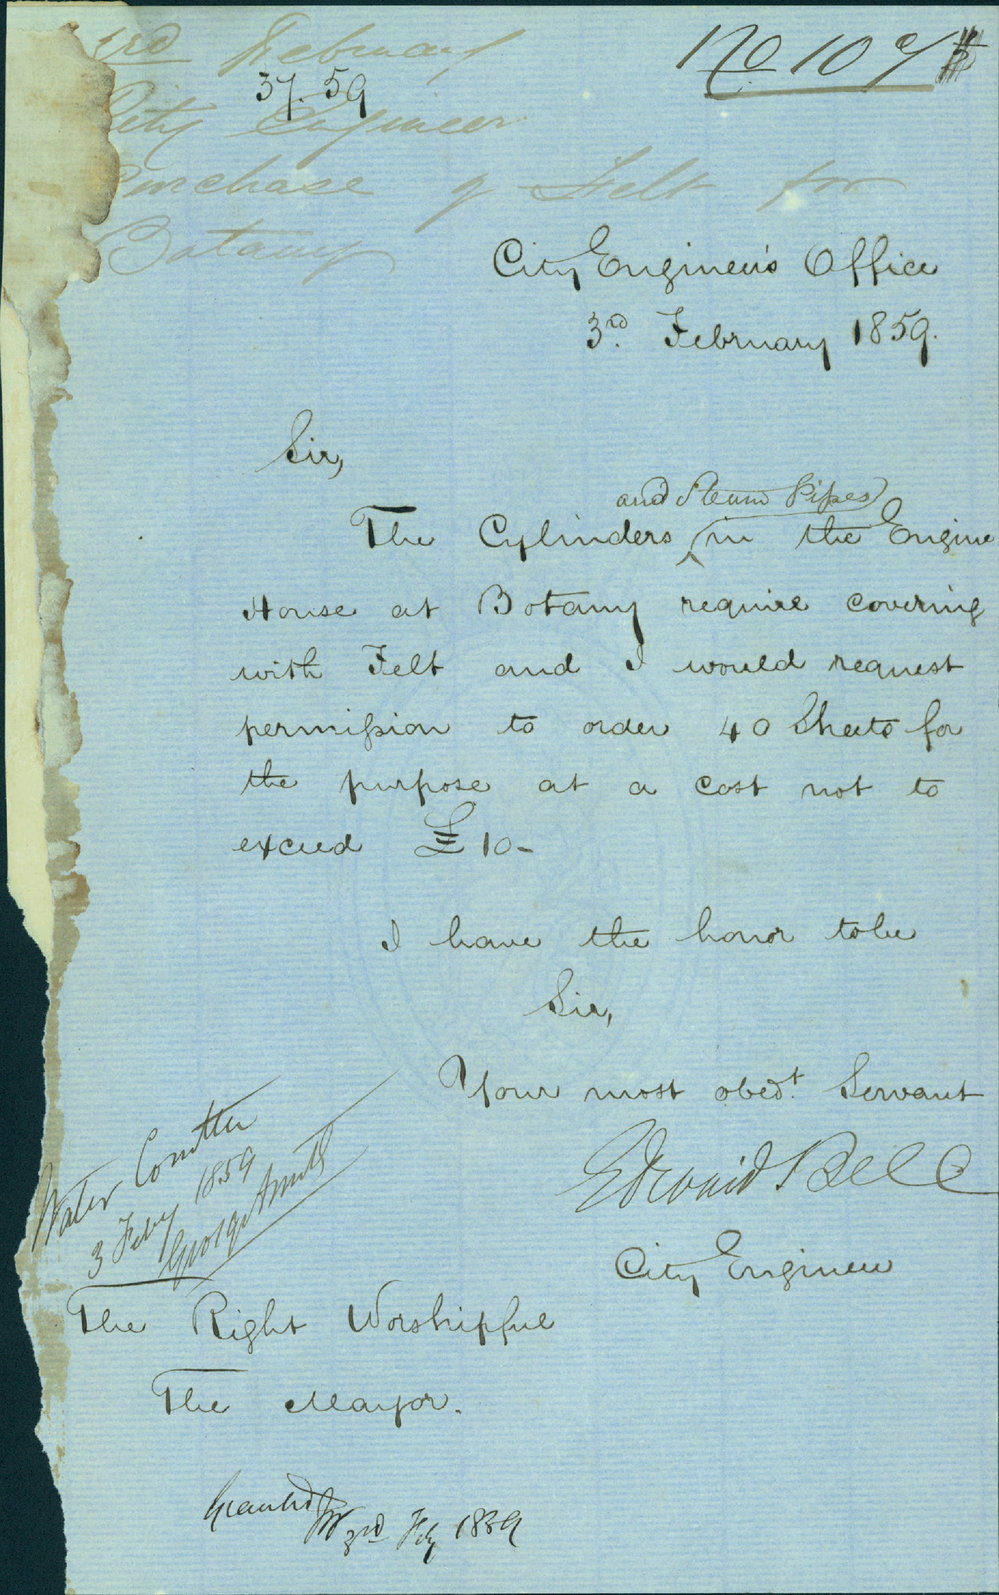 3rd February
37. 59
No 109
City Engineer
Purchase of Felt for
Botany
City Engineer's Office
3rd. February 1859.
Sir,
and Steam Pipes
The Cylinders in the Engine
House at Botany require covering
with Felt and I would request
permission to order 40 Sheets for
the purpose at a cost not to
exceed £10-
I have the honor to be
Sir,
Your most obedt. Servant
Edward Bell
City Engineer
Water Comttee
3 Feby 1859
George Smith
The Right Worshipful
The Mayor.
Granted
3rd Feby 1859